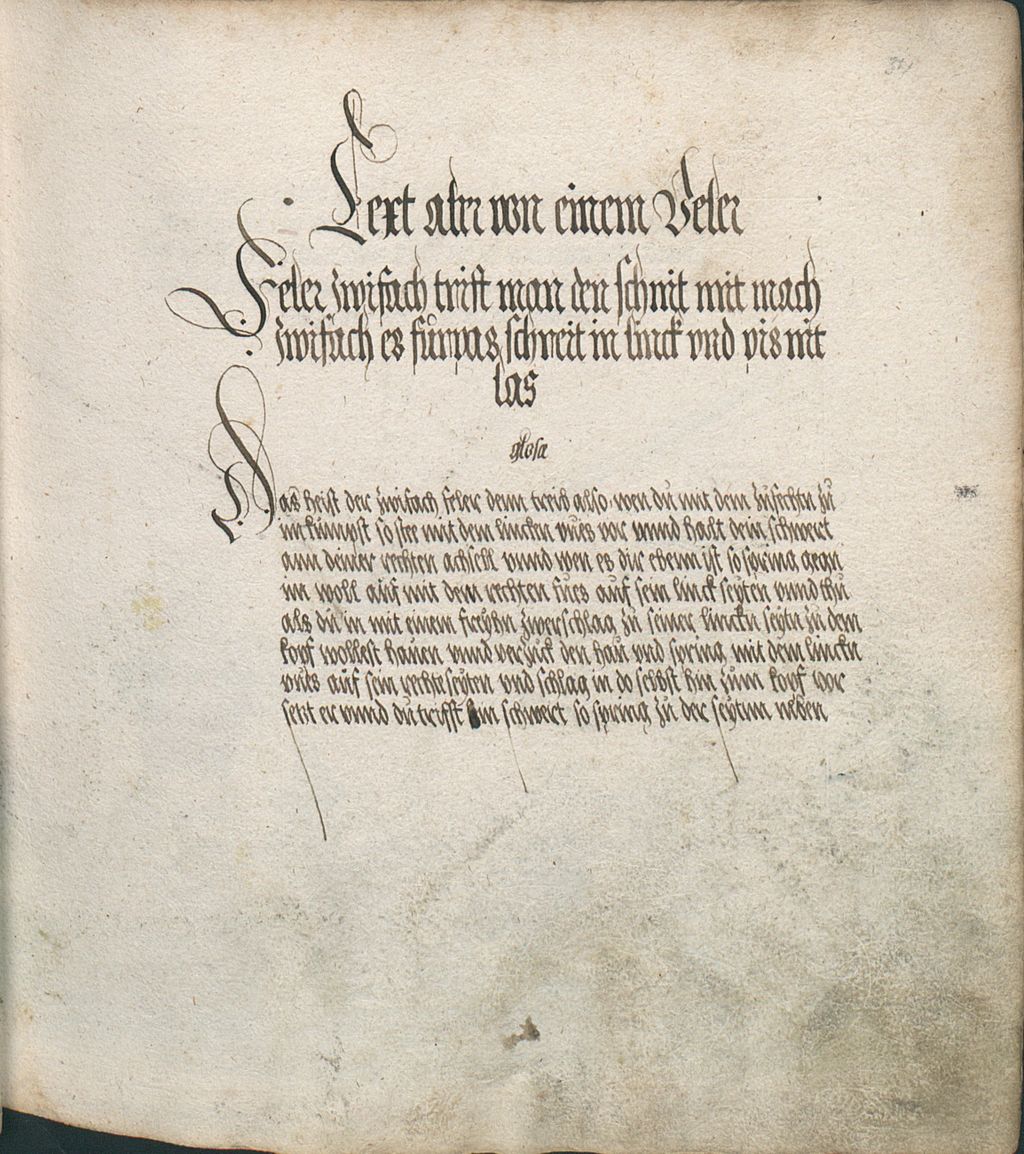 34
Text aber von einem Veler
Feler zwifach trift man den schnit mit mach
zwifach es fürpas schreit in linck vnd pis nit
las
glosa
Das heist der zwifach feler denn treib also wen du mit dem zufechtn zu
im kumpst so stee mit dem lincken vues vor vnnd halt dein schwert
ann deiner rechten achsell vnnd wen es dir ebenn ist so spring gegn
im woll auf mit dem rechten fues auf sein linck seyten vnnd thu
als du in mit einem freyhn zwerschlag zu seiner linckn seytn zu dem
kopf wollest hauen vnnd verzuck den hau vnd spring mit dem linckn
vues auf sein rechte seyten vnd schlag in do selbst hin zum kopf vor
setzt er vnnd du trifft im schwert so spring zu der seytnn neben